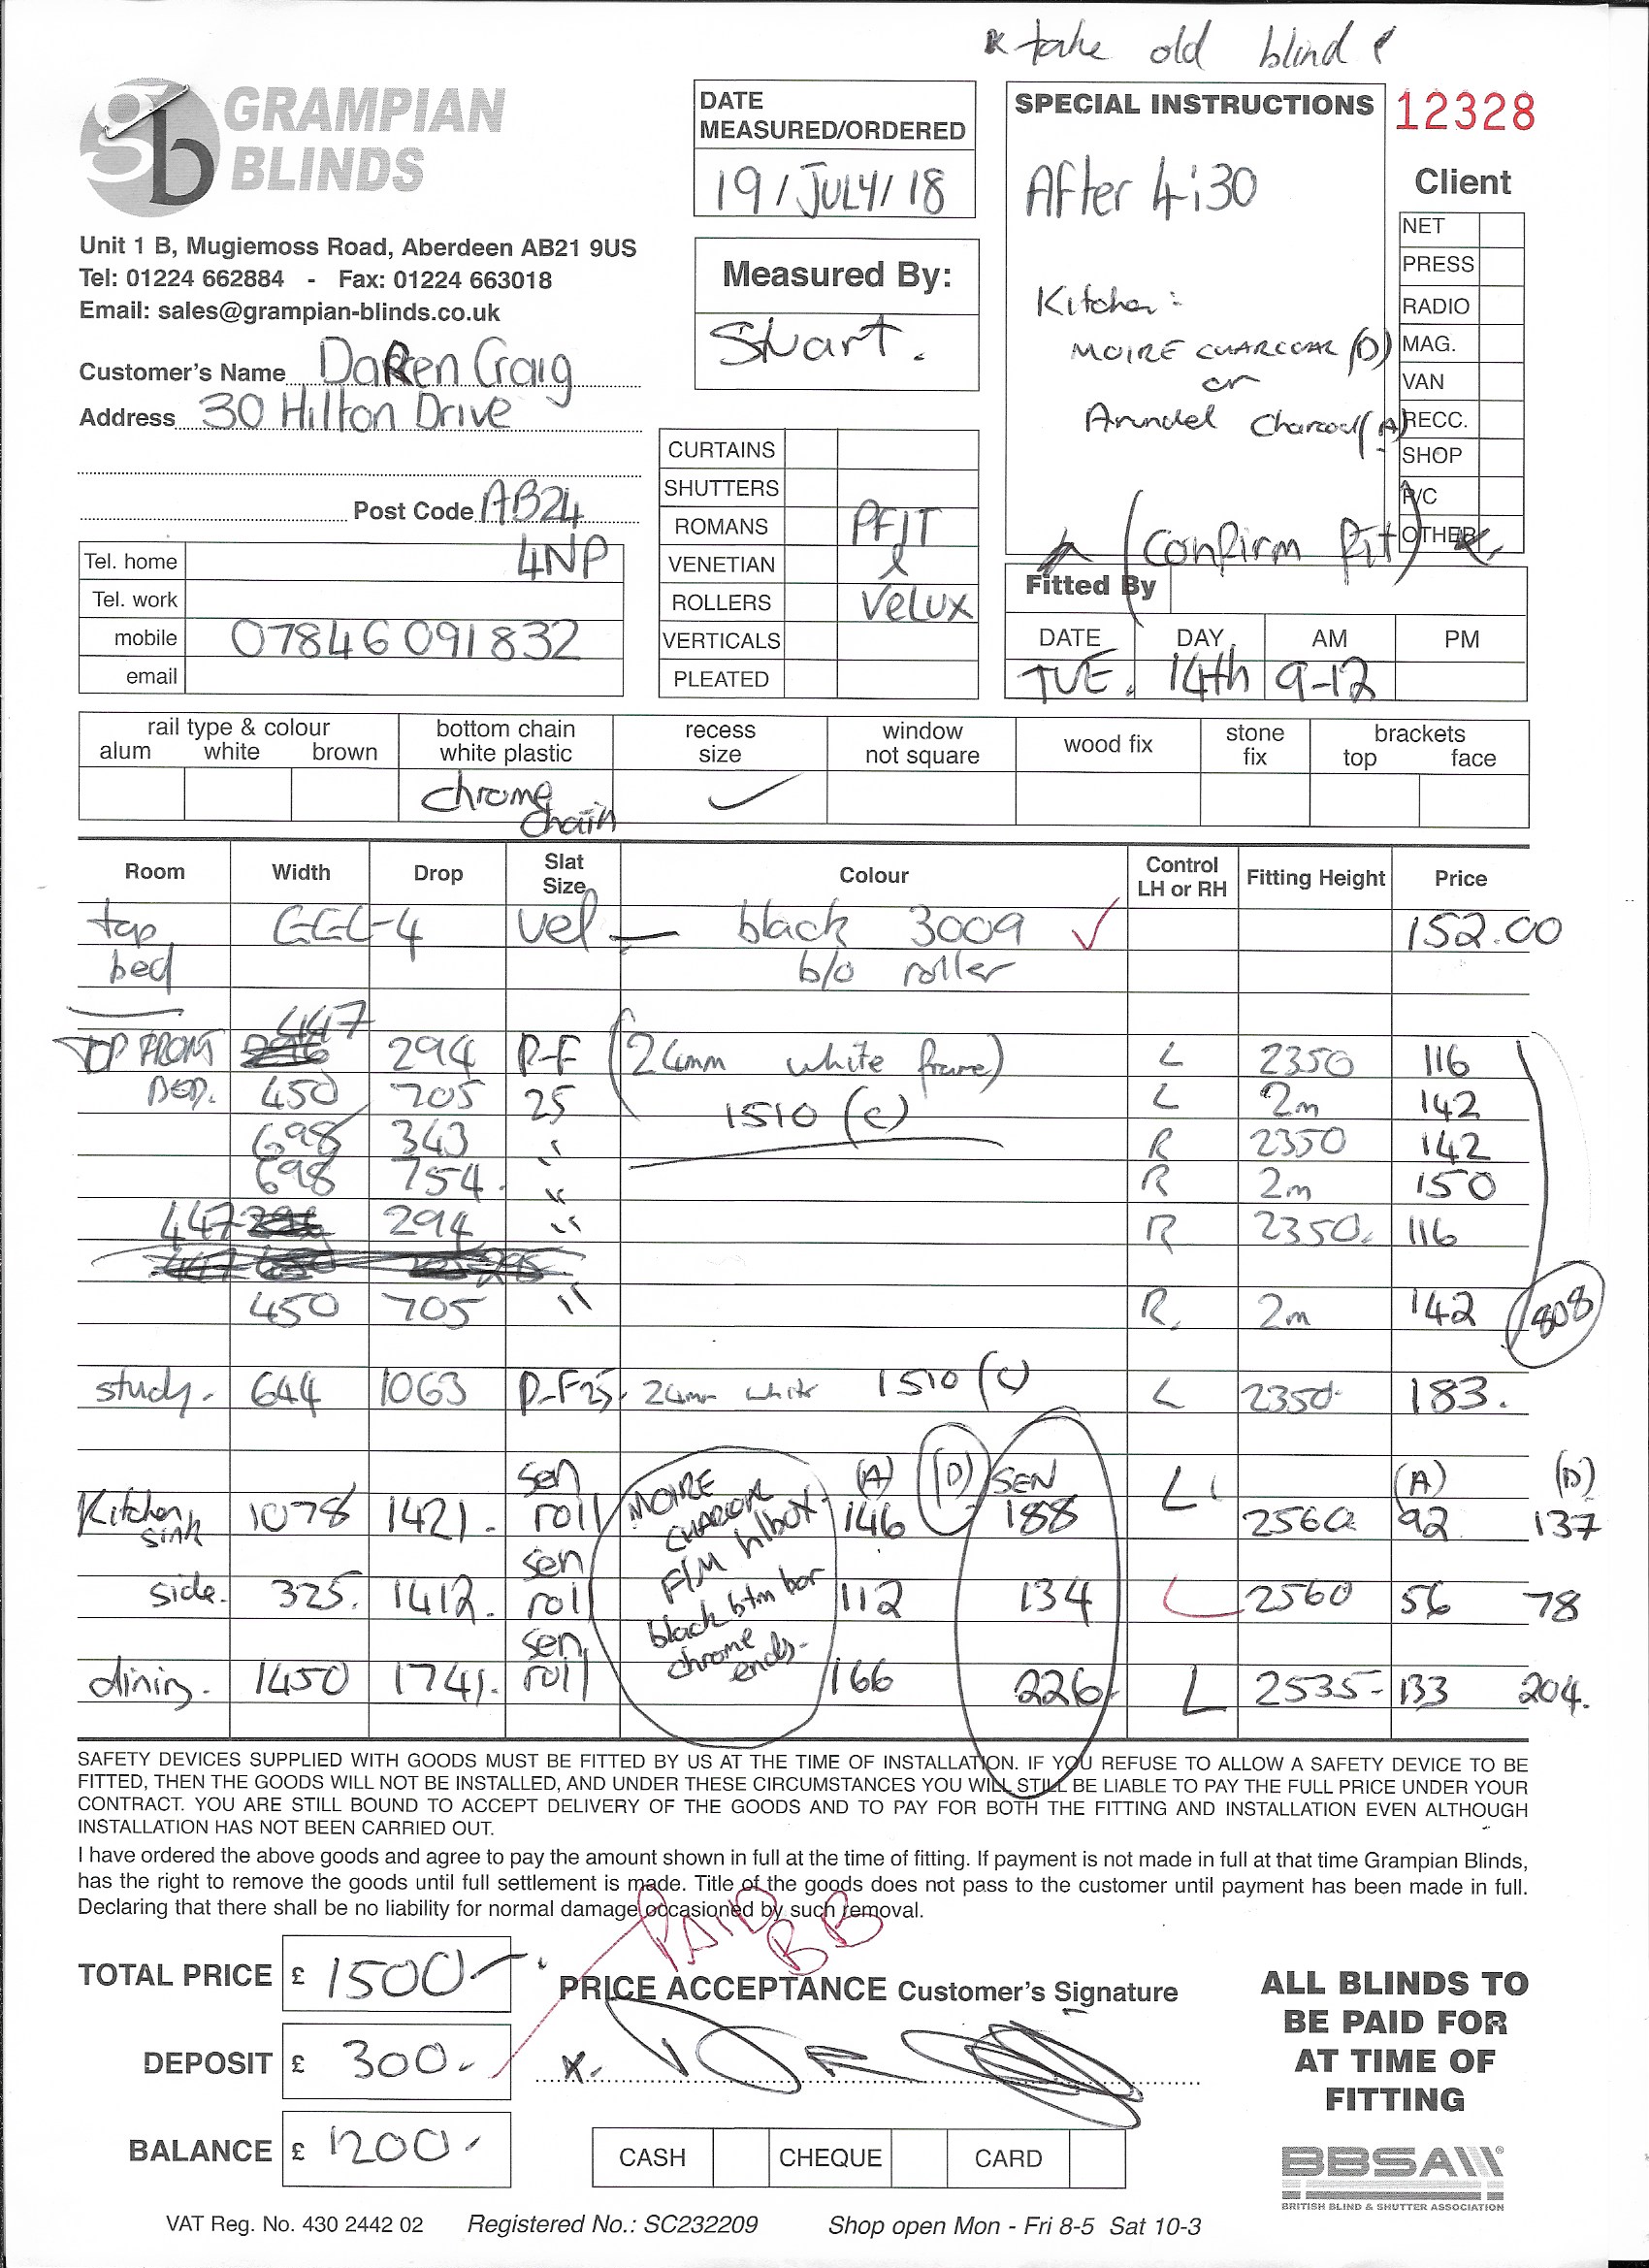 * take old blind
GRAMPIAN
BLINDS
gb
Unit 1 B, Mugiemoss Road, Aberdeen AB21 9US
Tel: 01224 662884 - Fax: 01224 663018
Email: sales@grampian-blinds.co.uk
Customer's Name Darren Craig
Address 30 Hilton Drive
Post Code AB24
4NP
Tel. home
Tel. work
mobile 07846 091832
email
DATE
MEASURED/ORDERED
19/JULY/18
Measured By:
Stuart.
CURTAINS
SHUTTERS
ROMANS PFIT
VENETIAN &
ROLLERS VELUX
VERTICALS
PLEATED
SPECIAL INSTRUCTIONS
After 4:30
Kitchen :
MOIRE CHARCOAL (D)
or
Arundel Charcoal (A)
(Confirm fit)
12328
Client
NET
PRESS
RADIO
MAG.
VAN
RECC.
SHOP
P/C
OTHER
Fitted By
DATE DAY AM PM
TUE. 14th 9-12
rail type & colour bottom chain recess window wood fix stone brackets
alum white brown white plastic size not square fix top face
chrome ✓
chain
Room Width Drop Slat Size Colour Control LH or RH Fitting Height Price
top GGL-4 vel — black 3009 ✓ 152.00
bed b/o roller
TOP FRONT 447 294 P-F (24mm white frame) L 2350 116
BED. 450 705 25 1510 (C) L 2m 142
698 343 " R 2350 142
698 754 " R 2m 150
447 294 " R 2350 116
450 705 " R 2m 142 808
study. 644 1063 P-F25. 24mm white 1510 (C) L 2350 183.
sen (A) (D) SEN (A) (D)
Kitchen sink 1078 1421. roll 146 188 L 2560 92 137
sen
side. 325. 1412. roll 112 134 L 2560 56 78
sen
dining. 1450 1741. roll 166 226 L 2535 133 204.
MOIRE
CHARCOAL
F/M h/box
black btm bar
chrome
ends
SAFETY DEVICES SUPPLIED WITH GOODS MUST BE FITTED BY US AT THE TIME OF INSTALLATION. IF YOU REFUSE TO ALLOW A SAFETY DEVICE TO BE
FITTED, THEN THE GOODS WILL NOT BE INSTALLED, AND UNDER THESE CIRCUMSTANCES YOU WILL STILL BE LIABLE TO PAY THE FULL PRICE UNDER YOUR
CONTRACT. YOU ARE STILL BOUND TO ACCEPT DELIVERY OF THE GOODS AND TO PAY FOR BOTH THE FITTING AND INSTALLATION EVEN ALTHOUGH
INSTALLATION HAS NOT BEEN CARRIED OUT.
I have ordered the above goods and agree to pay the amount shown in full at the time of fitting. If payment is not made in full at that time Grampian Blinds,
has the right to remove the goods until full settlement is made. Title of the goods does not pass to the customer until payment has been made in full.
Declaring that there shall be no liability for normal damage occasioned by such removal.
PAID
BB
TOTAL PRICE £ 1500-
DEPOSIT £ 300-
BALANCE £ 1200-
PRICE ACCEPTANCE Customer's Signature
x.
CASH CHEQUE CARD
ALL BLINDS TO
BE PAID FOR
AT TIME OF
FITTING
BBSA
BRITISH BLIND & SHUTTER ASSOCIATION
VAT Reg. No. 430 2442 02 Registered No.: SC232209 Shop open Mon - Fri 8-5 Sat 10-3